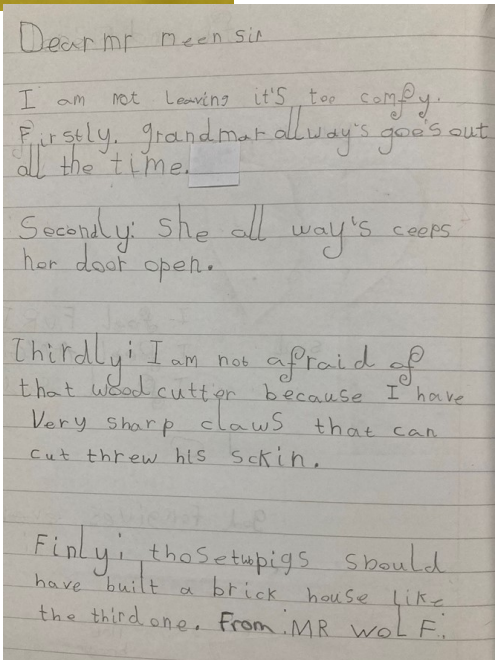 Dear mr meen sir
I am not leaving it's too comfy.
Firstly. grandmar all way's goe's out
all the time.
Secondly: She all way's ceeps
her door open.
Thirdly: I am not afraid of
that wood cutter because I have
very sharp claws that can
cut threw his sckin.
Finly: those two pigs should
have built a brick house like
the third one. From: MR WOLF.